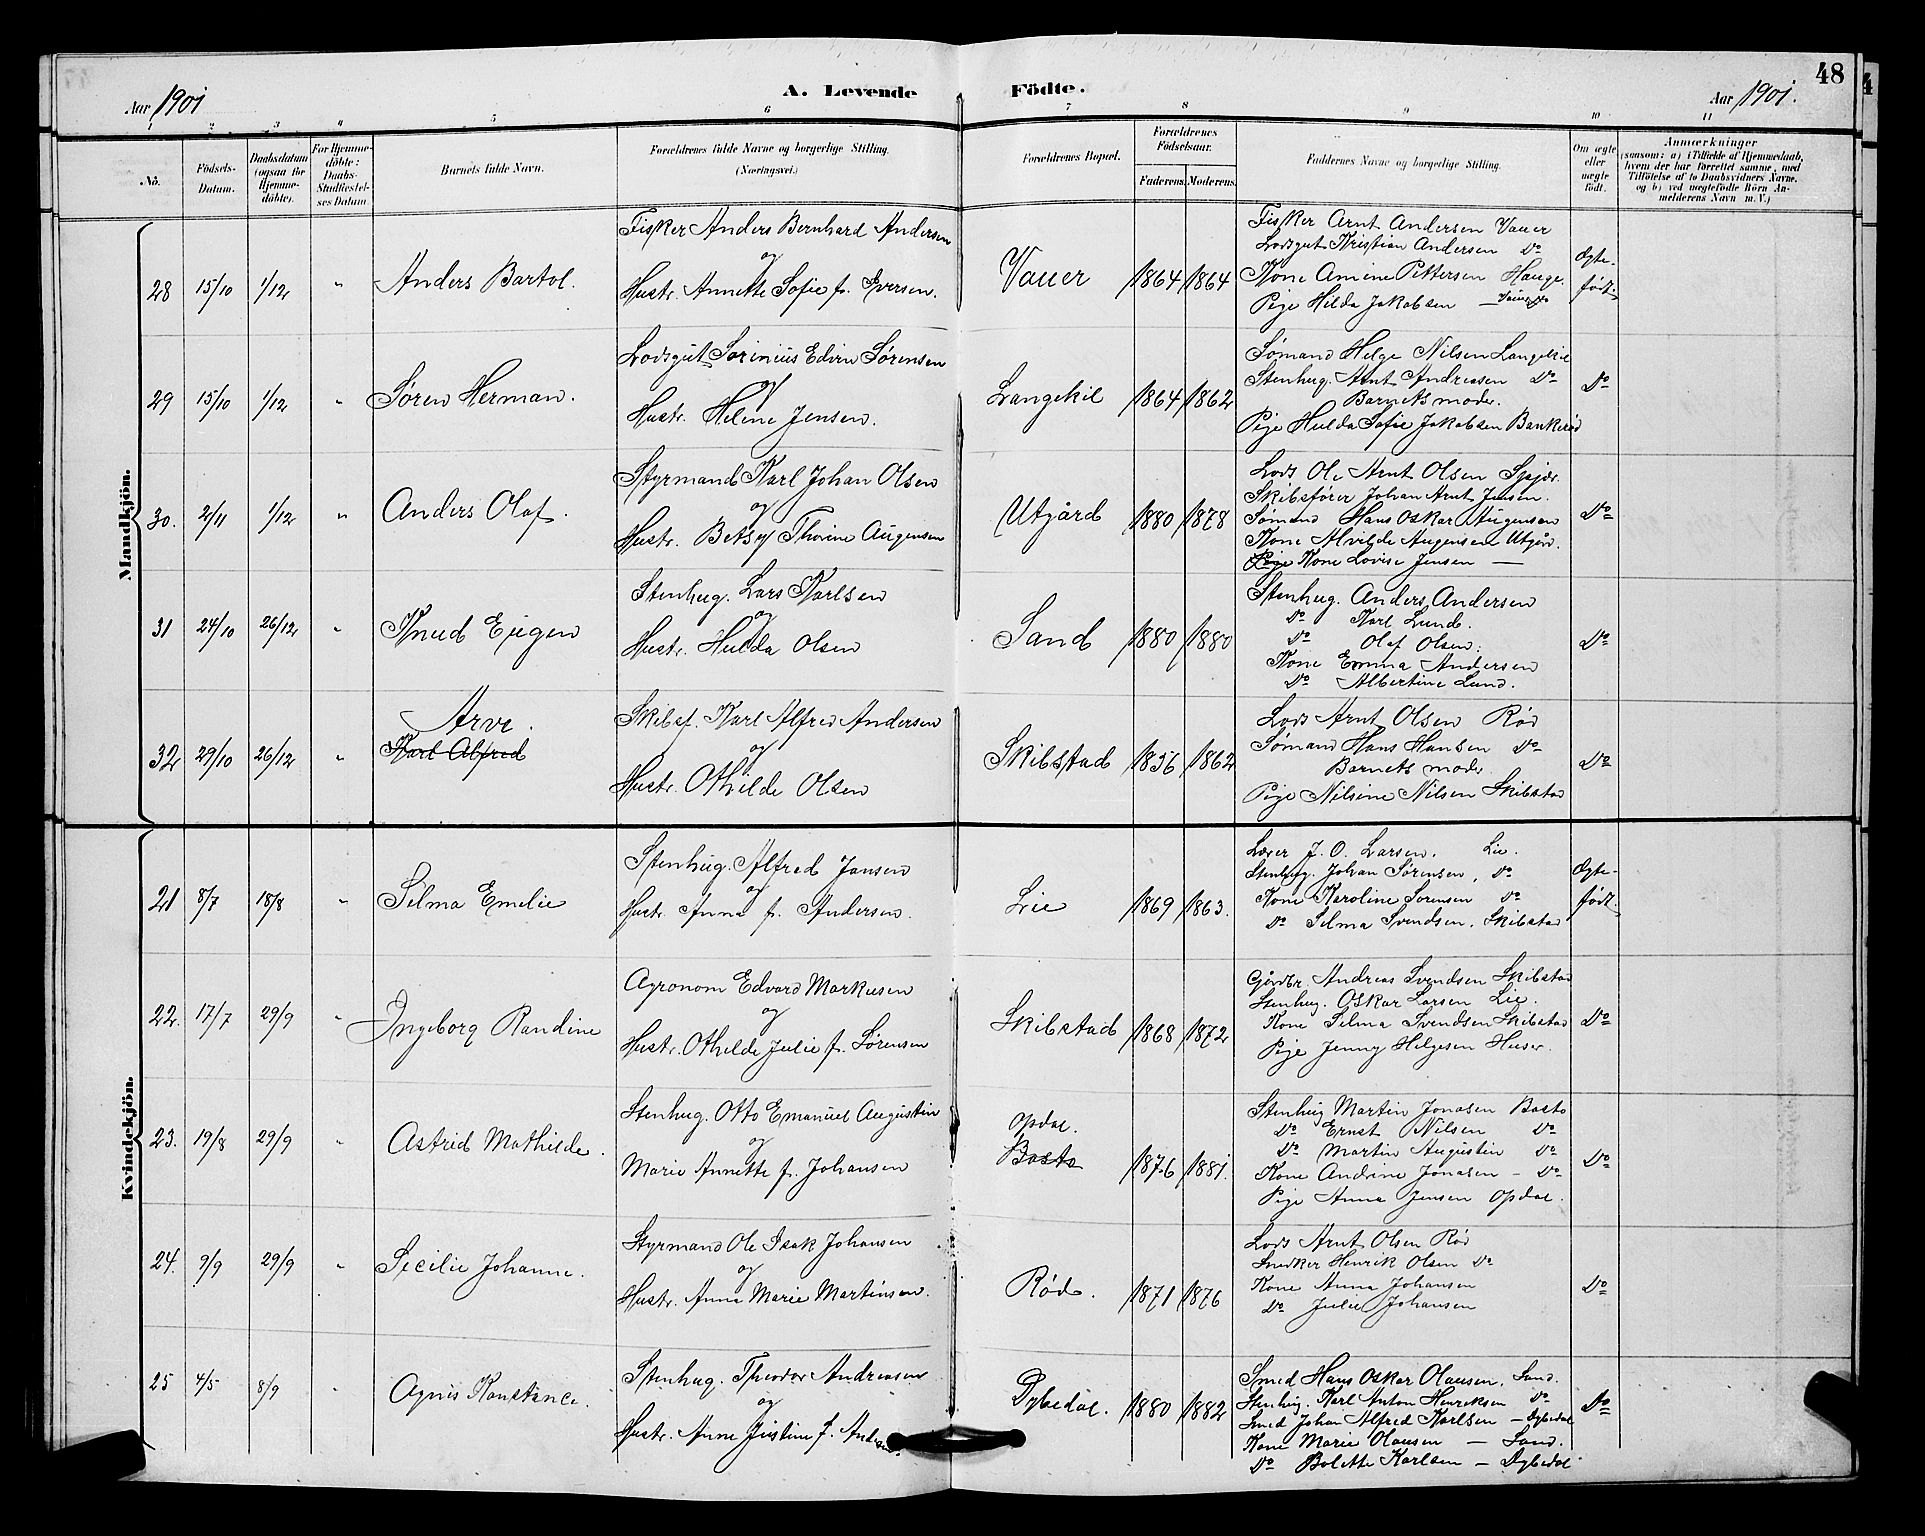 48
A. Levende Födte.
Aar 1901
Aar 1901.
1 2 3 4 5 6 7 8 9 10 11
No.
Födsels-Datum.
Daabsdatum (ogsaa for Hjemme-döbte).
For Hjemme-döbte: Daabs-Stadfæstel-ses Datum
Barnets fulde Navn.
Forældrenes fulde Navne og borgerlige Stilling. (Næringsvei.)
Forældrenes Bopæl.
Forældrenes Födselsaar.
Faderens. Moderens.
Faddernes Navne og borgerlige Stilling.
Om ægte eller uægte födt.
Anmærkninger
(saasom: a) i Tilfælde af Hjemmedaab, hvem der har forrettet samme, med Tilföielse af to Daabsvidners Navne. og b) ved uægtefödte Börn An-melderens Navn m. V.)
Mandkjön.
28 15/10 1/12 " Anders Bartol.
Fisker Anders Bernhard Andersen
og
Hustr. Annette Sofie f. Iversen.
Vauer 1864 1864
Fisker Arnt Andersen Vauer
Lodsgut Kristian Andersen Do
Kone Amine Pettersen Hauge.
Pige Hilda Jakobsen —
Ægte-født.
29 15/10 1/12 " Søren Herman.
Lodsgut Sorinius Edvin Sørensen
og
Hustr. Helene Jensen.
Langekil 1864 1862
Sømand Helge Nilsen Langekil
Stenhug. Arnt Andreasen Do
Barnets moder.
Pige Hulda Sofie Jakobsen Bankerød
Do
30. 2/11 1/12 " Anders Olaf.
Styrmand Karl Johan Olsen
og
Hustr. Betsy Thorine Augensen
Utgård 1880 1878
Lods Ole Arnt Olsen Spjær.
Skibsfører Johan Arnt Jensen.
Sømand Hans Oskar Augensen
Kone Alvilde Augensen Utgård.
Pige Kone Lovise Jensen —
Do
31 24/10 26/12 " Knud Eugen
Stenhug. Lars Karlsen
og
Hustr. Hulda Olsen
Sand 1880 1880
Stenhug. Anders Andersen
Do Karl Lund.
Do Olaf Olsen.
Kone Emma Andersen
Do Albertine Lund.
Do
32 29/10 26/12 " Arve.
Karl Alfred
Skibsf. Karl Alfred Andersen
og
Hustr. Othilde Olsen
Skibstad 1856 1862
Lods Arnt Olsen Rød
Sømand Hans Hansen Do
Barnets moder.
Pige Nilsine Nilsen Skibstad
Do
Kvindekjön.
21 8/7 18/8 " Selma Emelie
Stenhug. Alfred Jansen
og
Hustr. Anna f. Andersen.
Lie 1869 1863.
Lærer J. O. Larsen. Lie.
Stenhug. Johan Sørensen, Do
Kone Karoline Sørensen Do
Do Selma Svendsen. Skibstad
Ægte-født.
22. 17/7 29/9 " Ingeborg Randine
Agronom Edvard Markusen
og
Hustr. Othilde Julie f. Sørensen
Skibstad 1868 1872
Gårdbr. Andreas Svendsen Skibstad
Stenhug. Oskar Larsen Lie.
Kone Selma Svendsen Skibstad
Pige Jenny Helgesen Huser.
Do
23. 19/8 29/9 " Astrid Mathilde.
Stenhug. Otto Emanuel Augustin
og
Marie Annette f. Johansen
Opdal.
Basto 1876 1881.
Stenhug Martin Jonasen Basto
Do Ernst Nilsen Do
Do Martin Augustin Do
Kone Andrine Jonasen – Do
Pige Anna Jensen Opdal.
Do
24. 9/9 29/9 " Secilie Johanne.
Styrmand Ole Isak Johansen
og
Hustr. Anna Marie Martinsen.
Rød. 1871 1876
Lods Arnt Olsen Rød
Snedker Henrik Olsen Do
Kone Anna Johansen
Do Julie Johansen
Do
25 4/5 8/9 " Agnes Konstance.
Stenhug. Theodor Andreasen
og
Hustr. Anne Justine f.
Dybedal. 1880 1882
Smed Hans Oskar Olausen. Sand.
Stenhug. Karl Anton Henriksen Do
Smed Johan Alfred Karlsen – Dybedal
Kone Marie Olausen — Sand.
Do Bolette Karlsen — Dybedal
Do